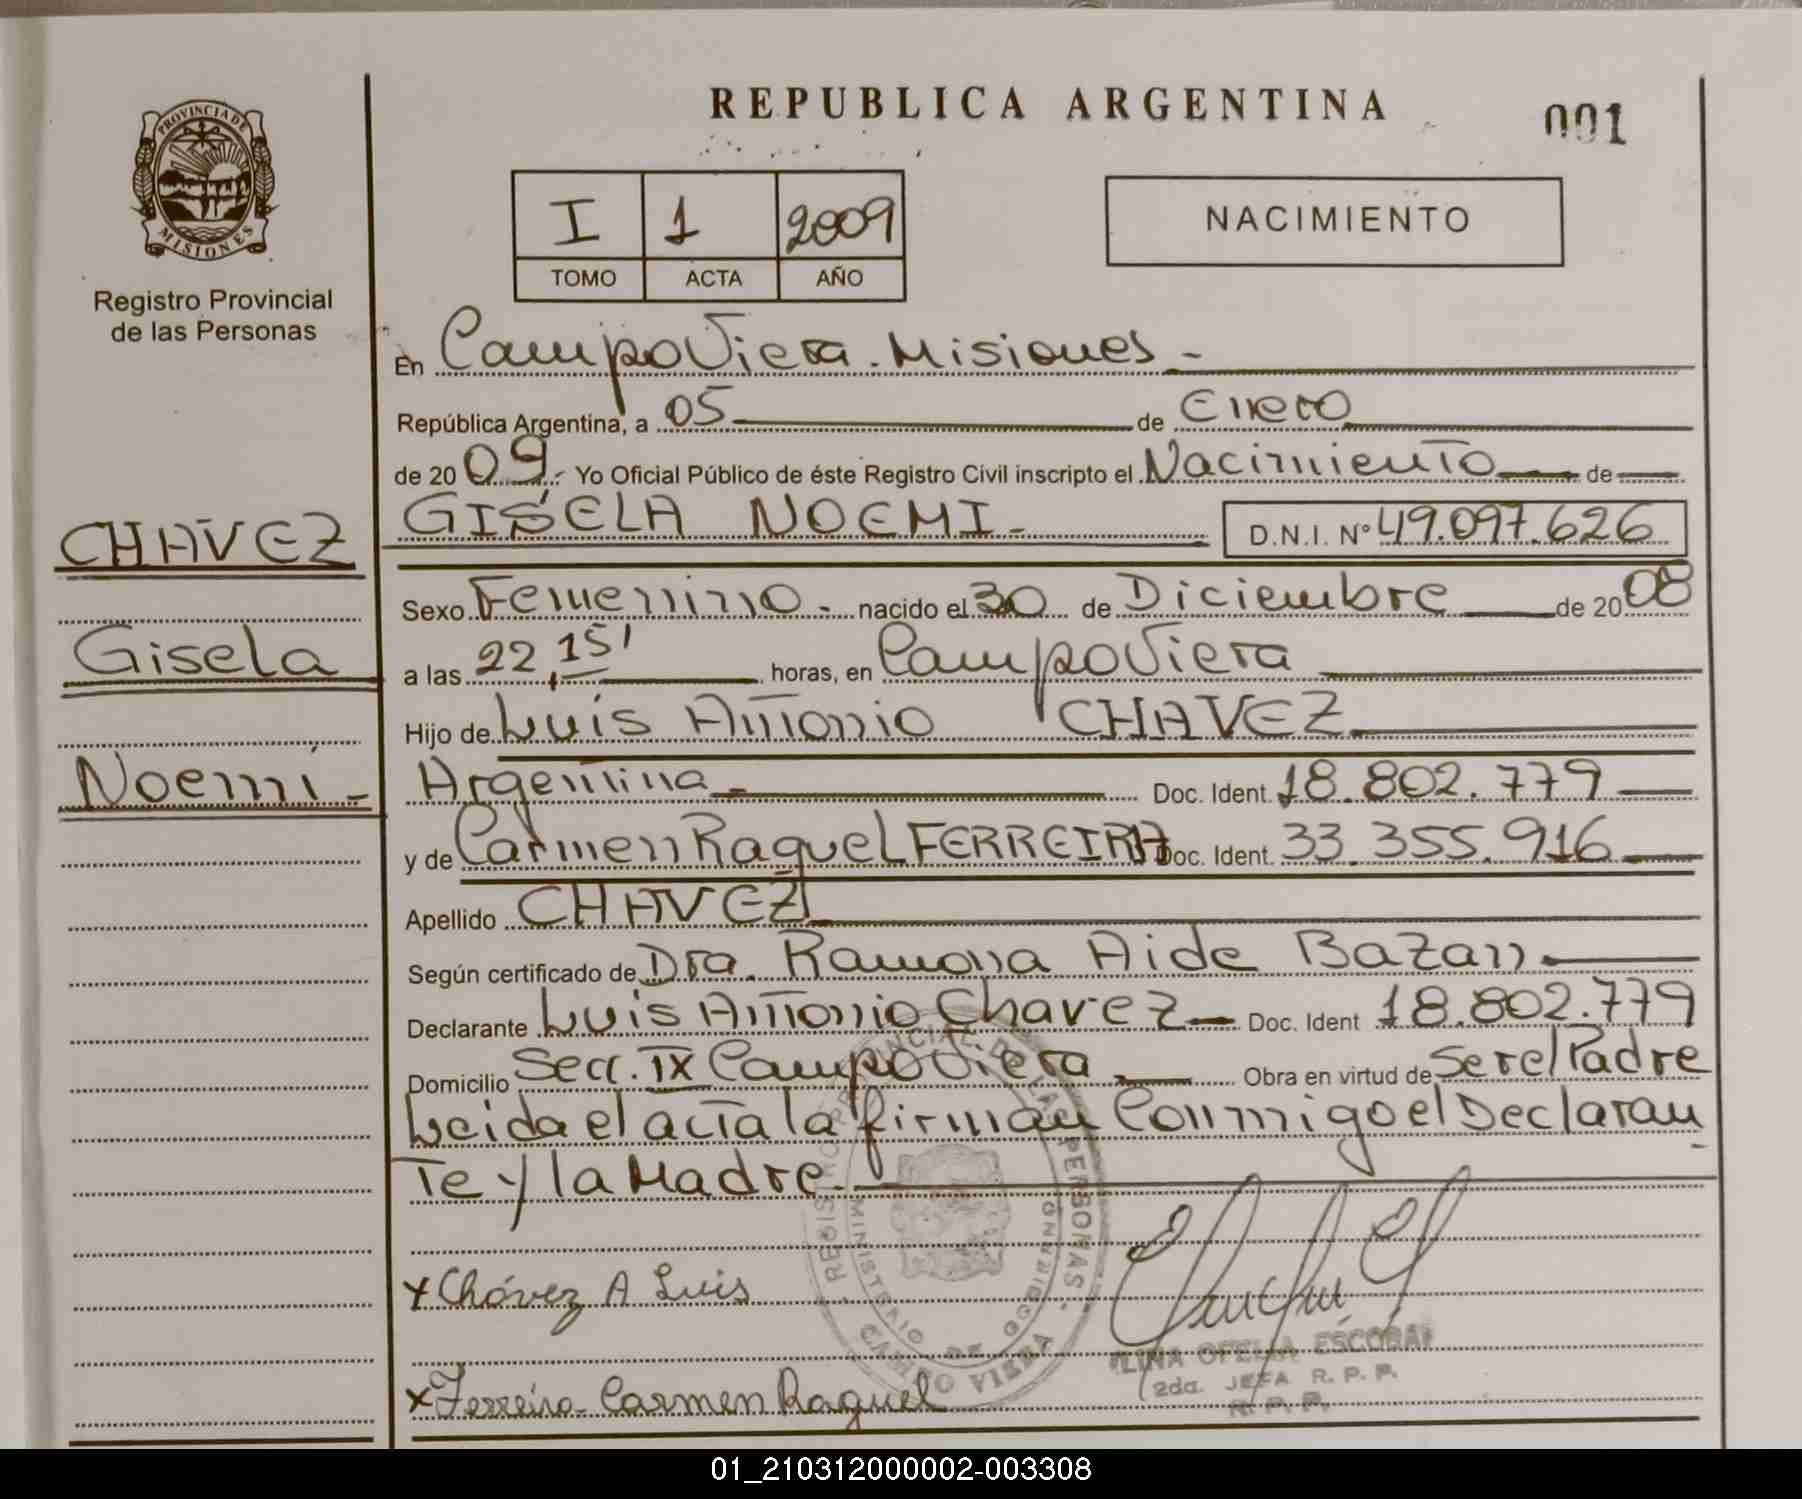 REPUBLICA ARGENTINA
001
PROVINCIA DE
MISIONES
Registro Provincial
de las Personas
I 1 2009
TOMO ACTA AÑO
NACIMIENTO
En Campo Viera. Misiones -
República Argentina, a 05 de Enero
de 2009.- Yo Oficial Público de éste Registro Civil inscripto el Nacimiento de
GISELA NOEMI.- D.N.I. Nº 49.097.626
CHAVEZ
Gisela
Noemí -
Sexo Femenino.- nacido el 30 de Diciembre de 2008
a las 22,15' horas, en Campo Viera
Hijo de Luis Antonio CHAVEZ
Argentina - Doc. Ident. 18.802.779
y de Carmen Raquel FERREIRA Doc. Ident. 33.355.916
Apellido CHAVEZ
Según certificado de Dra. Ramona Aide Bazan
Declarante Luis Antonio Chavez Doc. Ident 18.802.779
Domicilio Secc. IX Campo Viera Obra en virtud de Ser el Padre
Leida el acta la firman Conmigo el Declaran
Te y la Madre.
REGISTRO PROVINCIAL DE LAS PERSONAS
MINISTERIO DE GOBIERNO
CAMPO VIERA
x Chávez A Luis
x Ferreira Carmen Raquel
OFELIA ESCOBAR
2da. JEFA R. P. P.
R. P. P.
01_210312000002-003308